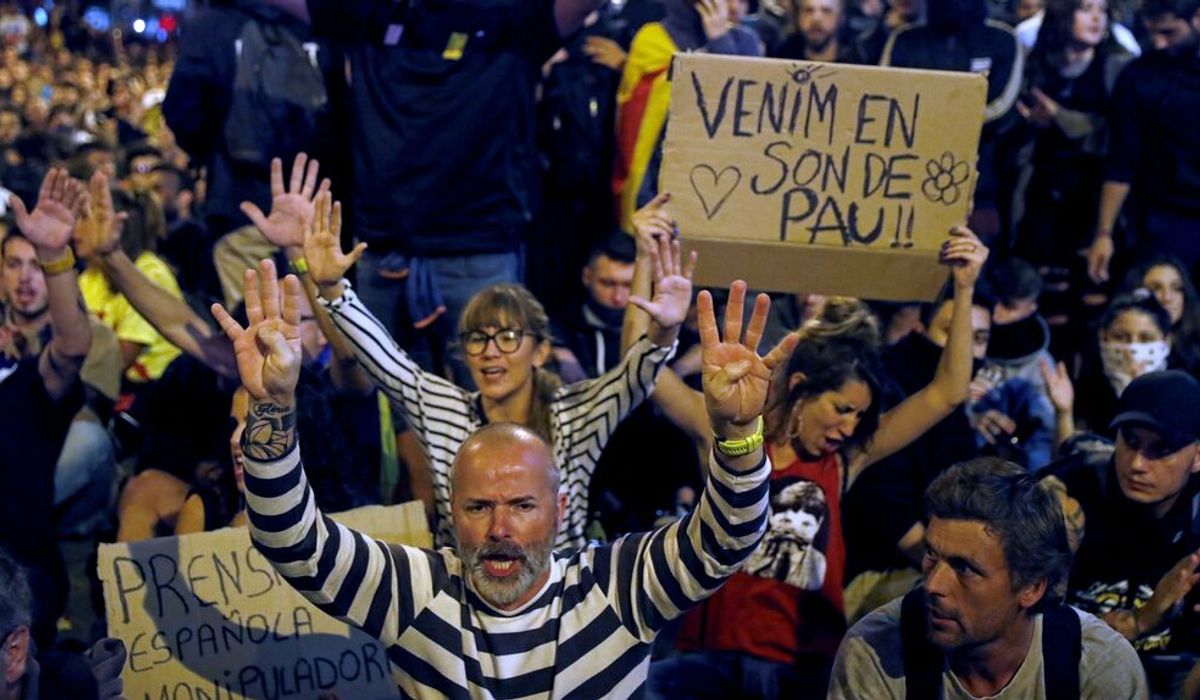 VENIM EN
SON DE
PAU!!
PRENSA
ESPAÑOLA
MANIPULADORA